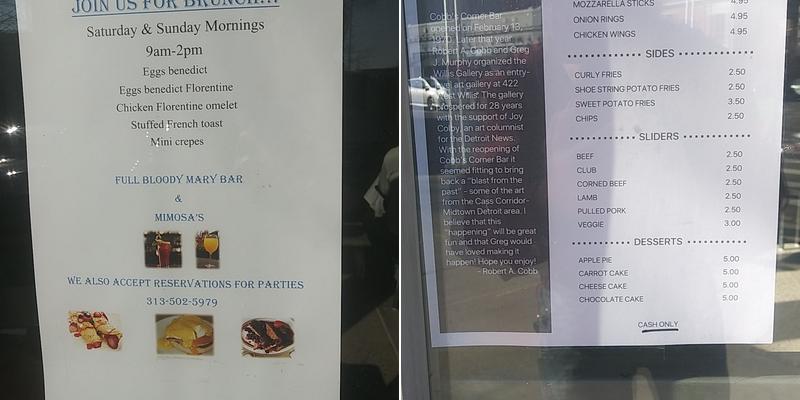 JOIN US FOR BRUNCH...
Saturday & Sunday Mornings
9am-2pm
Eggs benedict
Eggs benedict Florentine
Chicken Florentine omelet
Stuffed French toast
Mini crepes
FULL BLOODY MARY BAR
&
MIMOSA'S
WE ALSO ACCEPT RESERVATIONS FOR PARTIES
313-502-5979
Cobb's Corner Bar
opened on February 13,
1970. Later that year
Robert A. Cobb and Greg
J. Murphy organized the
Willis Gallery as an entry-
level art gallery at 422
West Willis. The gallery
prospered for 28 years
with the support of Joy
Colby, an art columnist
for the Detroit News.
With the reopening of
Cobb's Corner Bar it
seemed fitting to bring
back a "blast from the
past" - some of the art
from the Cass Corridor-
Midtown Detroit area. I
believe that this
"happening" will be great
fun and that Greg would
have loved making it
happen! Hope you enjoy!
- Robert A. Cobb
MOZZARELLA STICKS 4.95
ONION RINGS 4.95
CHICKEN WINGS 4.95
SIDES
CURLY FRIES 2.50
SHOE STRING POTATO FRIES 2.50
SWEET POTATO FRIES 3.50
CHIPS 2.50
SLIDERS
BEEF 2.50
CLUB 2.50
CORNED BEEF 2.50
LAMB 2.50
PULLED PORK 2.50
VEGGIE 3.00
DESSERTS
APPLE PIE 5.00
CARROT CAKE 5.00
CHEESE CAKE 5.00
CHOCOLATE CAKE 5.00
CASH ONLY